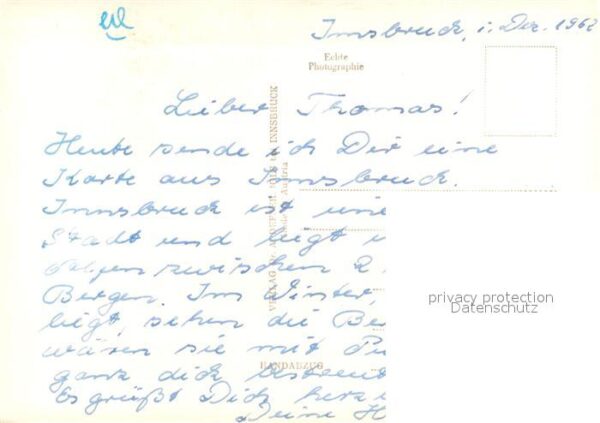 erl
Innsbruck, i. Dez. 1962
Echte
Photographie
Lieber Thomas!
Heute sende ich Dir eine
Karte aus Innsbruck.
Innsbruck ist eine
Stadt und liegt
zwischen 2
Bergen. Im Winter,
liegt, sehen die Be
wären sie mit Pu
ganz dick bestreut
Es grüßt Dich herz
Deine H
VERLAG INNSBRUCK
Austria
HANDABZUG
privacy protection
Datenschutz